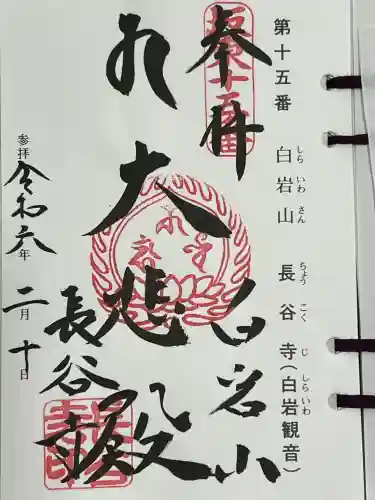 第十五番 白岩山 長谷寺(白岩観音)
しら いわ さん ちょう こく じ しらいわ
奉拝
白岩山
大悲殿
長谷寺
参拝 令和六年 二月 十日